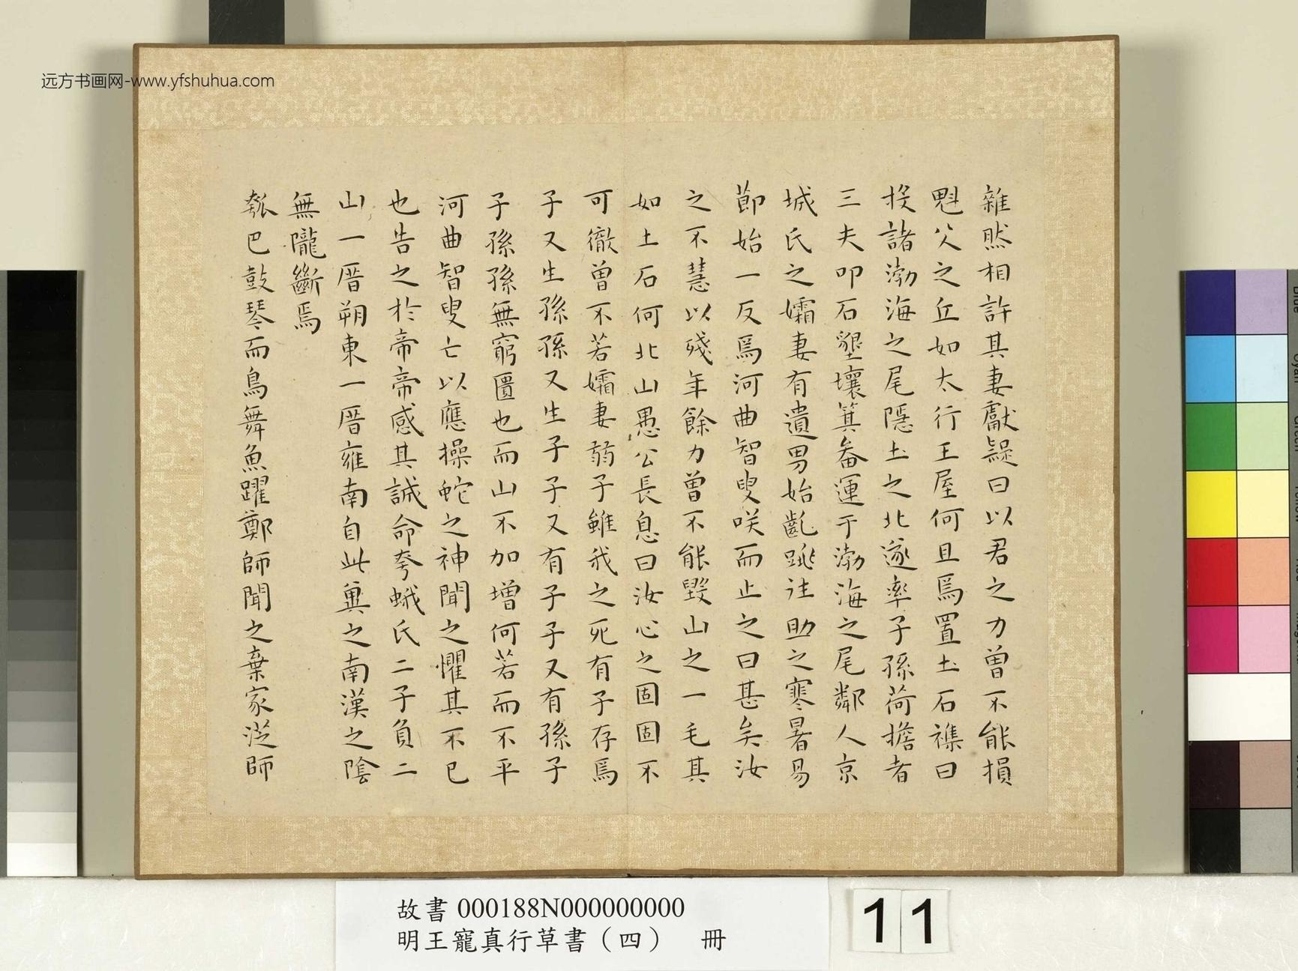 远方书画网-www.yfshuhua.com
雜然相許其妻獻疑曰以君之力曾不能損
魁父之丘如太行王屋何且焉置土石襍曰
投諸渤海之尾隱土之北遂率子孫荷擔者
三夫叩石墾壤箕畚運于渤海之尾鄰人京
城氏之孀妻有遺男始齔跳往助之寒暑易
節始一反焉河曲智叟咲而止之曰甚矣汝
之不慧以殘年餘力曾不能毀山之一毛其
如土石何北山愚公長息曰汝心之固固不
可徹曾不若孀妻弱子雖我之死有子存焉
子又生孫孫又生子子又有子子又有孫子
子孫孫無窮匱也而山不加增何若而不平
河曲智叟亡以應操蛇之神聞之懼其不已
也告之於帝帝感其誠命夸蛾氏二子負二
山一厝朔東一厝雍南自此冀之南漢之陰
無隴斷焉
瓠巴鼓琴而鳥舞魚躍鄭師聞之棄家從師
故書 000188N000000000
明王寵真行草書（四） 冊
11